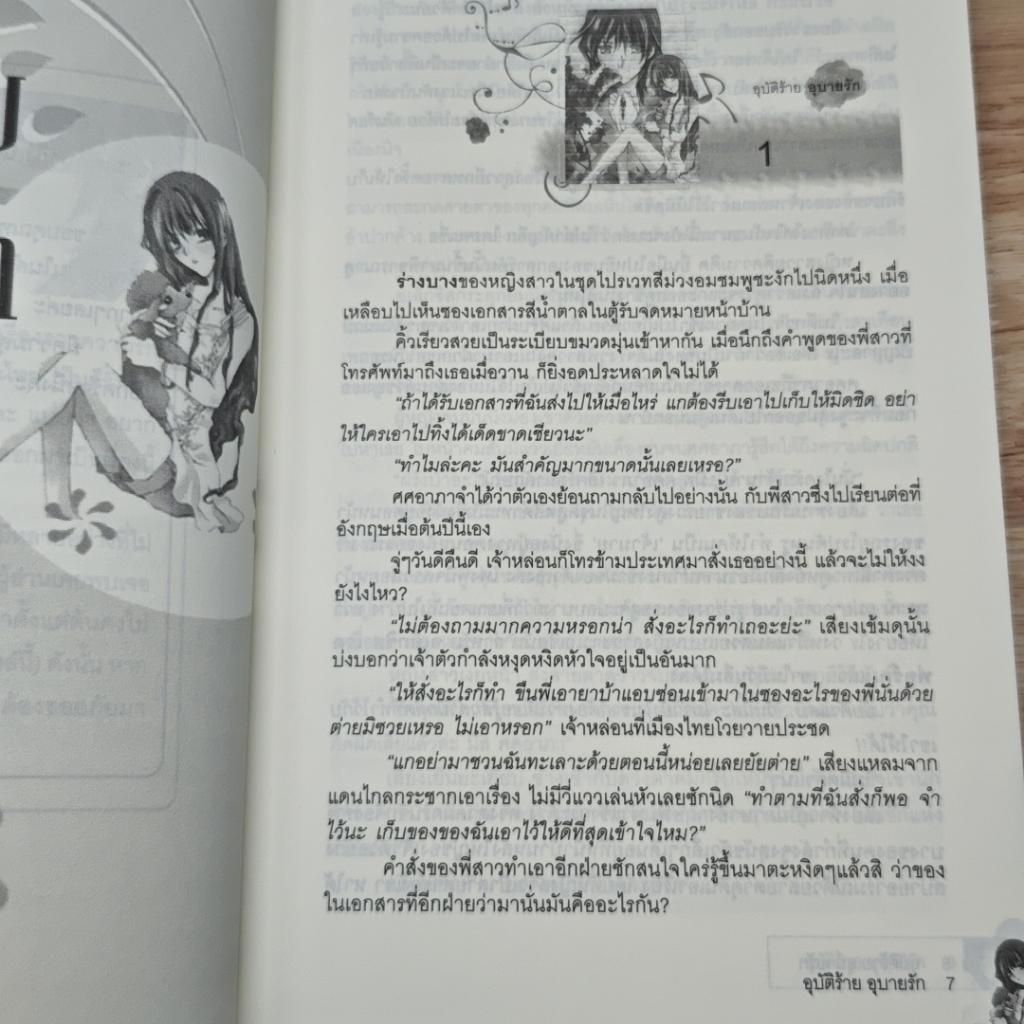 อุบัติร้าย อุบายรัก
1
ร่างบางของหญิงสาวในชุดไปรเวทสีม่วงอมชมพูชะงักไปนิดหนึ่ง เมื่อ
เหลือบไปเห็นซองเอกสารสีน้ำตาลในตู้รับจดหมายหน้าบ้าน
คิ้วเรียวสวยเป็นระเบียบขมวดมุ่นเข้าหากัน เมื่อนึกถึงคำพูดของพี่สาวที่
โทรศัพท์มาถึงเธอเมื่อวาน ก็ยิ่งอดประหลาดใจไม่ได้
“ถ้าได้รับเอกสารที่ฉันส่งไปให้เมื่อไหร่ แกต้องรีบเอาไปเก็บให้มิดชิด อย่า
ให้ใครเอาไปทิ้งได้เด็ดขาดเชียวนะ”
“ทำไมล่ะคะ มันสำคัญมากขนาดนั้นเลยเหรอ?”
ศศอาภาจำได้ว่าตัวเองย้อนถามกลับไปอย่างนั้น กับพี่สาวซึ่งไปเรียนต่อที่
อังกฤษเมื่อต้นปีนี้เอง
จู่ๆวันดีคืนดี เจ้าหล่อนก็โทรข้ามประเทศมาสั่งเธออย่างนี้ แล้วจะไม่ให้งง
ยังไงไหว?
“ไม่ต้องถามมากความหรอกน่า สั่งอะไรก็ทำเถอะย่ะ” เสียงเข้มดุนั้น
บ่งบอกว่าเจ้าตัวกำลังหงุดหงิดหัวใจอยู่เป็นอันมาก
“ให้สั่งอะไรก็ทำ ขืนพี่เอายาบ้าแอบซ่อนเข้ามาในซองอะไรของพี่นั่นด้วย
ต่ายมิซวยเหรอ ไม่เอาหรอก” เจ้าหล่อนที่เมืองไทยโวยวายประชด
“แกอย่ามาชวนฉันทะเลาะด้วยตอนนี้หน่อยเลยยัยต่าย” เสียงแหลมจาก
แดนไกลกระชากเอาเรื่อง ไม่มีวี่แววเล่นหัวเลยซักนิด “ทำตามที่ฉันสั่งก็พอ จำ
ไว้นะ เก็บของของฉันเอาไว้ให้ดีที่สุดเข้าใจไหม?”
คำสั่งของพี่สาวทำเอาอีกฝ่ายชักสนใจใคร่รู้ขึ้นมาตะหงิดๆแล้วสิ ว่าของ
ในเอกสารที่อีกฝ่ายว่ามานั่นมันคืออะไรกัน?
อุบัติร้าย อุบายรัก 7